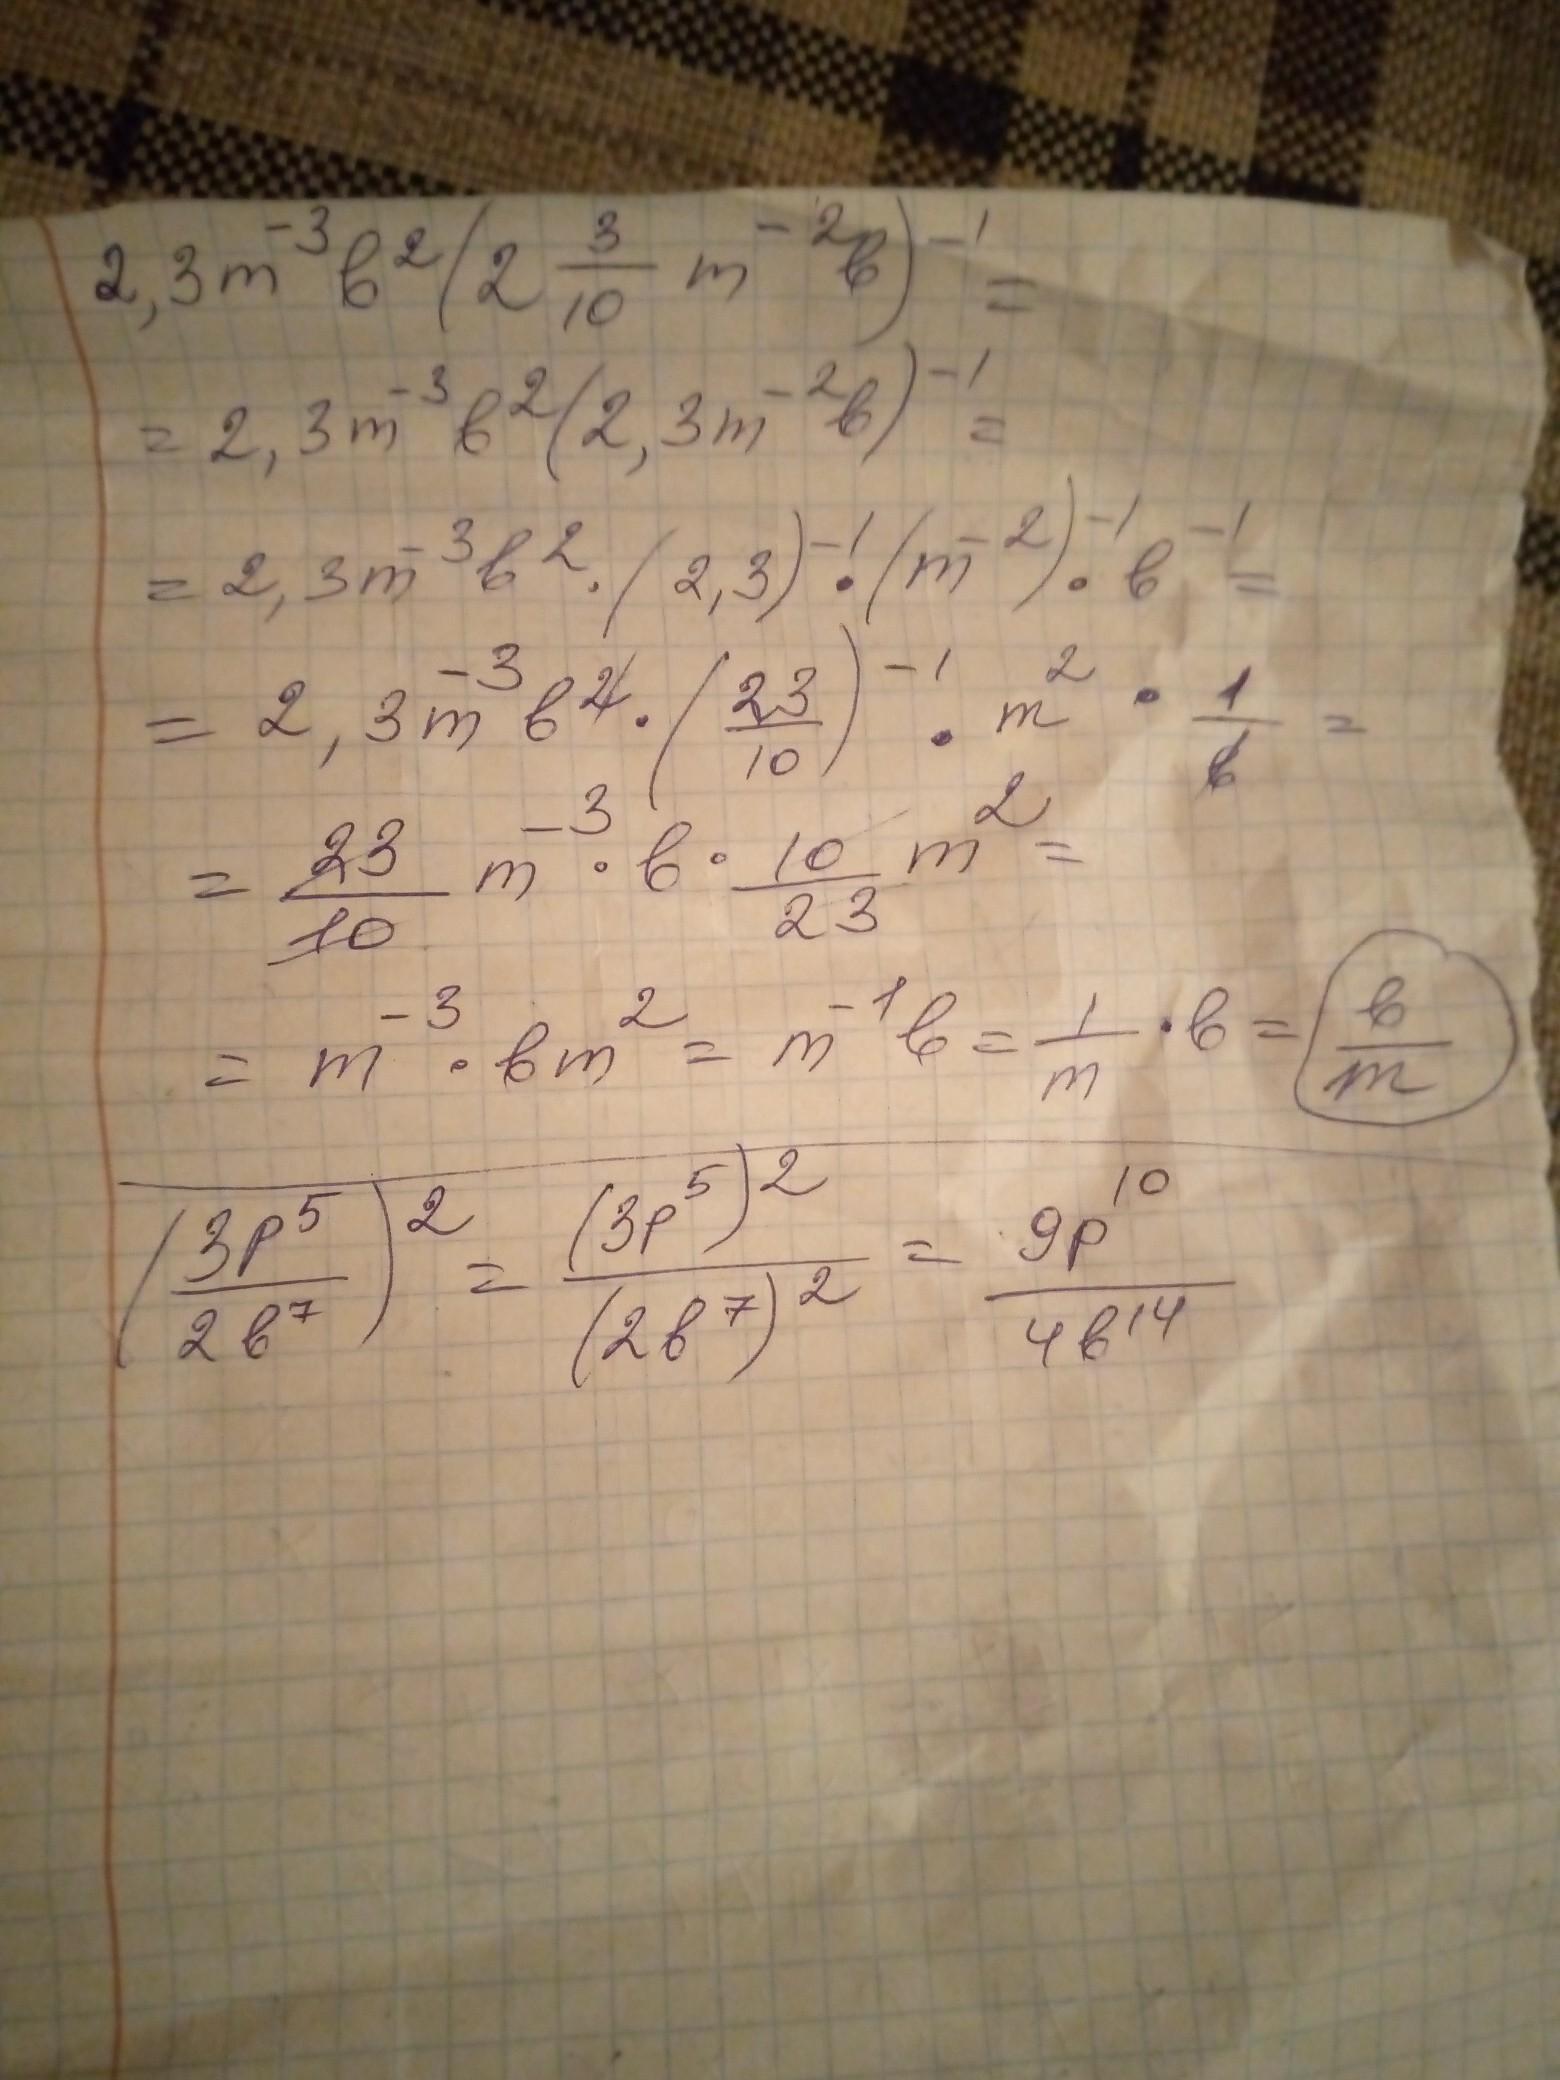 2,3m⁻³b²(2 3/10 m⁻²b)⁻¹ =
= 2,3m⁻³b²(2,3m⁻²b)⁻¹ =
= 2,3m⁻³b² · (2,3)⁻¹ · (m⁻²)⁻¹ · b⁻¹ =
= 2,3m⁻³b² · (23/10)⁻¹ · m² · 1/b =
= 23/10 m⁻³ · b · 10/23 m² =
= m⁻³ · bm² = m⁻¹b = 1/m · b = b/m
(3p⁵/2b⁷)² = (3p⁵)²/(2b⁷)² = 9p¹⁰/4b¹⁴